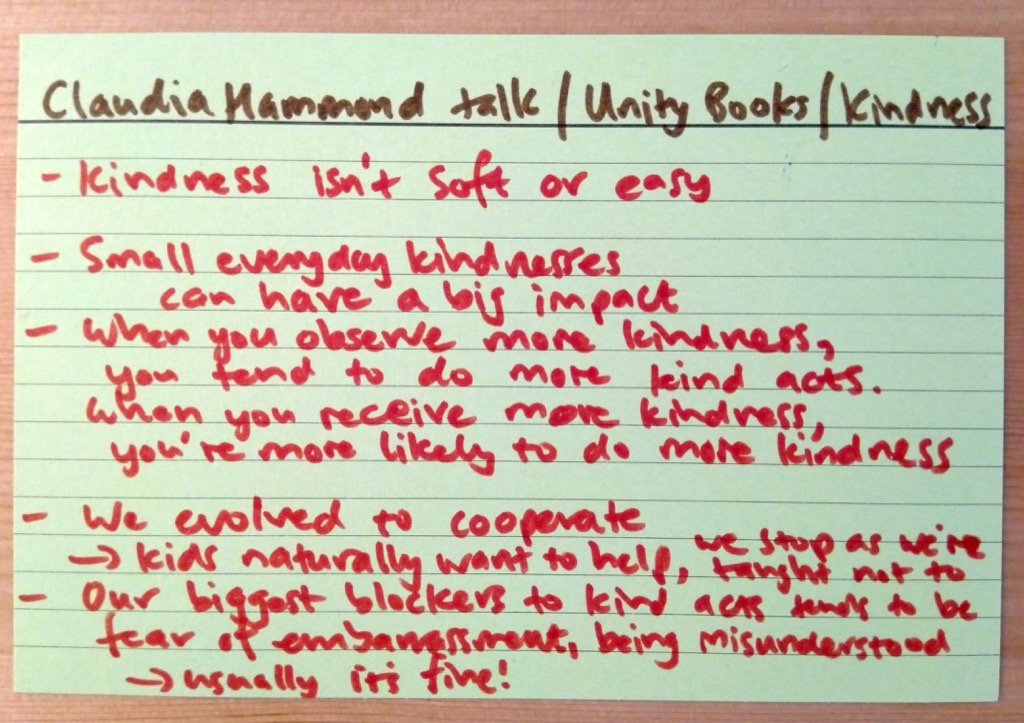 Claudia Hammond talk / Unity Books / Kindness
- Kindness isn't soft or easy
- Small everyday kindnesses
can have a big impact
- When you observe more kindness,
you tend to do more kind acts.
When you receive more kindness,
you're more likely to do more kindness
- We evolved to cooperate
→ kids naturally want to help, we stop as we're
taught not to
- Our biggest blockers to kind acts tends to be
fear of embarrassment, being misunderstood
→ usually it's fine!